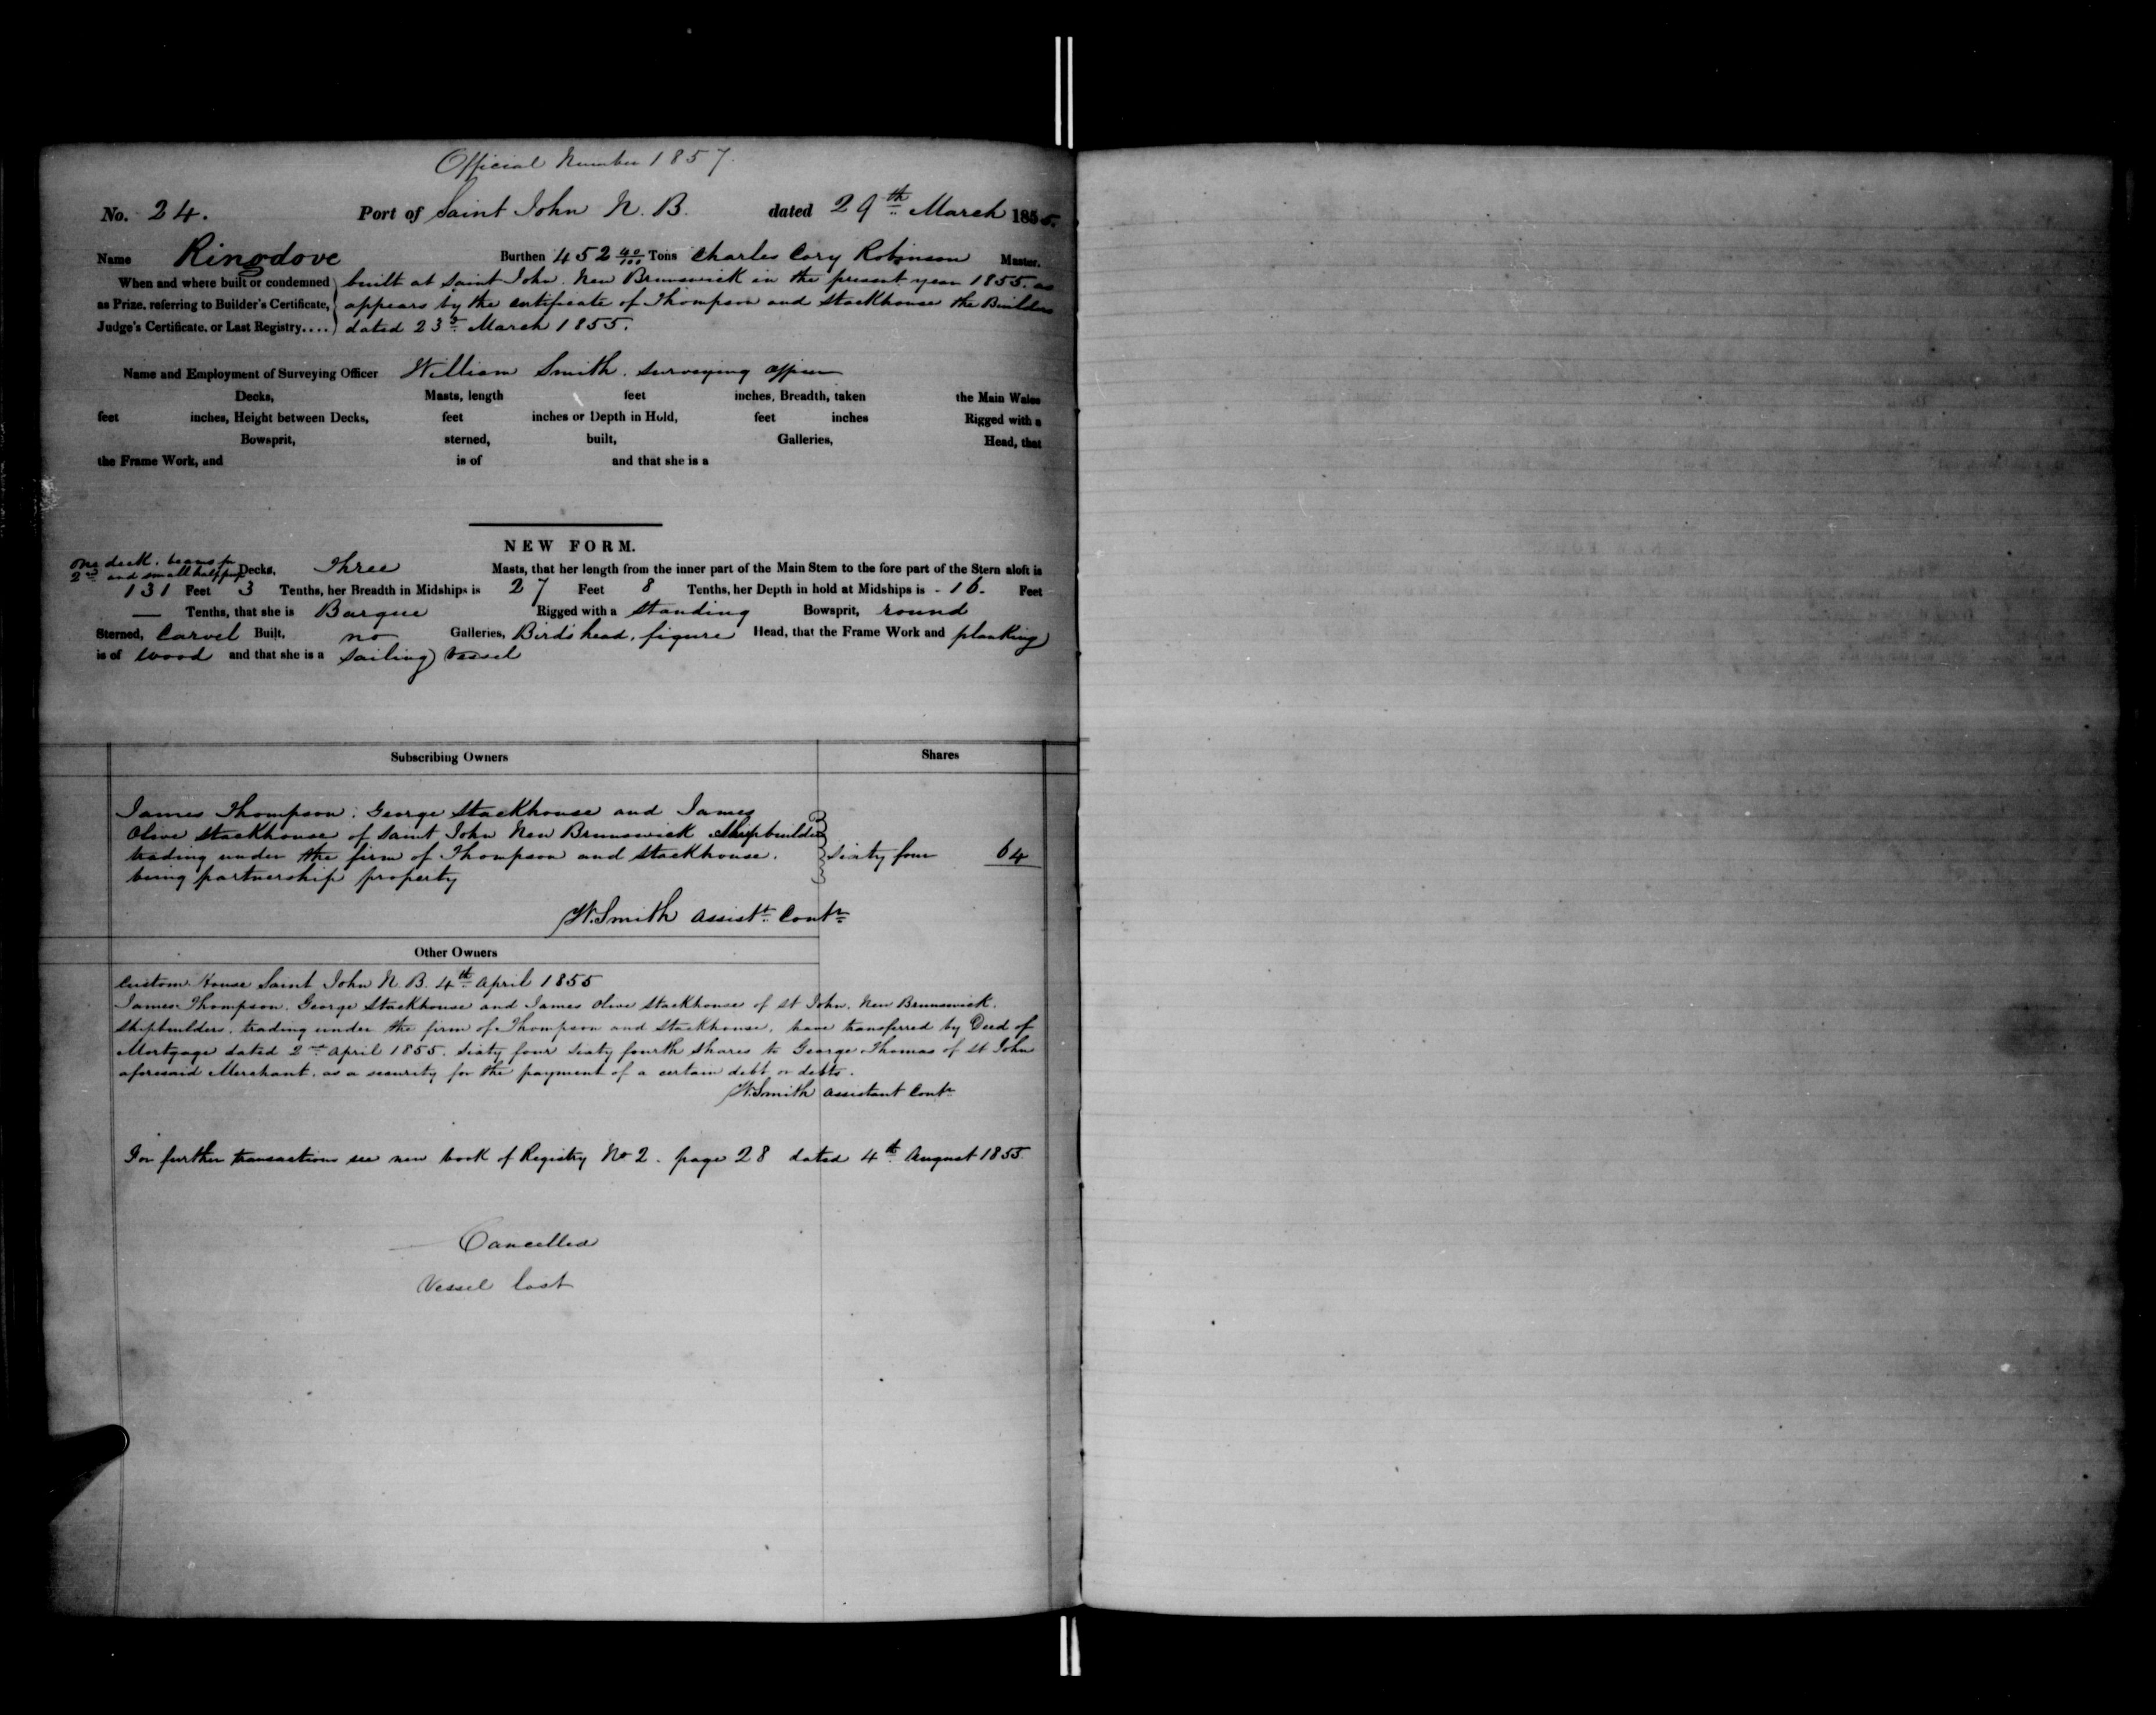 Official Number 1857.
No. 24. Port of Saint John N. B. dated 29th March 1855.
Name Ringdove Burthen 452 40/100 Tons Charles Cory Robinson Master.
When and where built or condemned built at Saint John. New Brunswick in the present year 1855. as
as Prize, referring to Builder's Certificate, appears by the certificate of Thompson and Stackhouse the Builders
Judge's Certificate, or Last Registry.... dated 23d March 1855.
Name and Employment of Surveying Officer William Smith. Surveying Officer
Decks, Masts, length feet inches, Breadth, taken the Main Wales
feet inches, Height between Decks, feet inches or Depth in Hold, feet inches Rigged with a
Bowsprit, sterned, built, Galleries, Head, that
the Frame Work, and is of and that she is a
NEW FORM.
One deck. beams for
2nd and small half poop Decks, Three Masts, that her length from the inner part of the Main Stem to the fore part of the Stern aloft is
131 Feet 3 Tenths, her Breadth in Midships is 27 Feet 8 Tenths, her Depth in hold at Midships is - 16. Feet
— Tenths, that she is Barque Rigged with a standing Bowsprit, round
Sterned, Carvel Built, no Galleries, Birds head, figure Head, that the Frame Work and planking
is of wood and that she is a sailing vessel
Subscribing Owners Shares
James Thompson. George Stackhouse and James
Olive Stackhouse of Saint John New Brunswick Shipbuilders
trading under the firm of Thompson and Stackhouse. Sixty four 64
being partnership property
W. Smith Assistt. Contr
Other Owners
Custom House Saint John N. B. 4th April 1855
James Thompson. George Stackhouse and James Olive Stackhouse of St John. New Brunswick.
Shipbuilders. trading under the firm of Thompson and Stackhouse. have transferred by Deed of
Mortgage dated 2nd April 1855. Sixty four Sixty fourth Shares to George Thomas of St John
aforesaid Merchant. as a security for the payment of a certain debt or debts.
W. Smith Assistant Contr
For further transactions see new book of Registry No 2. page 28 dated 4th August 1855
Cancelled
Vessel lost